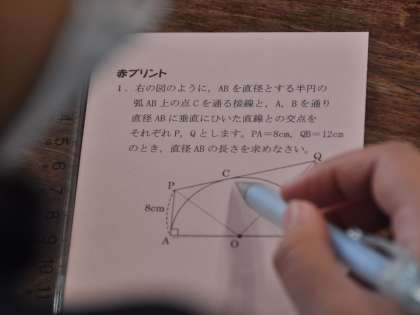 赤プリント
1．右の図のように，ABを直径とする半円の
弧AB上の点Cを通る接線と，A，Bを通り
直径ABに垂直にひいた直線との交点を
それぞれP，Qとします。PA=8cm，QB=12cm
のとき，直径ABの長さを求めなさい。
Q
C
P
8cm
A
O
5 6 7 8 9 10 11